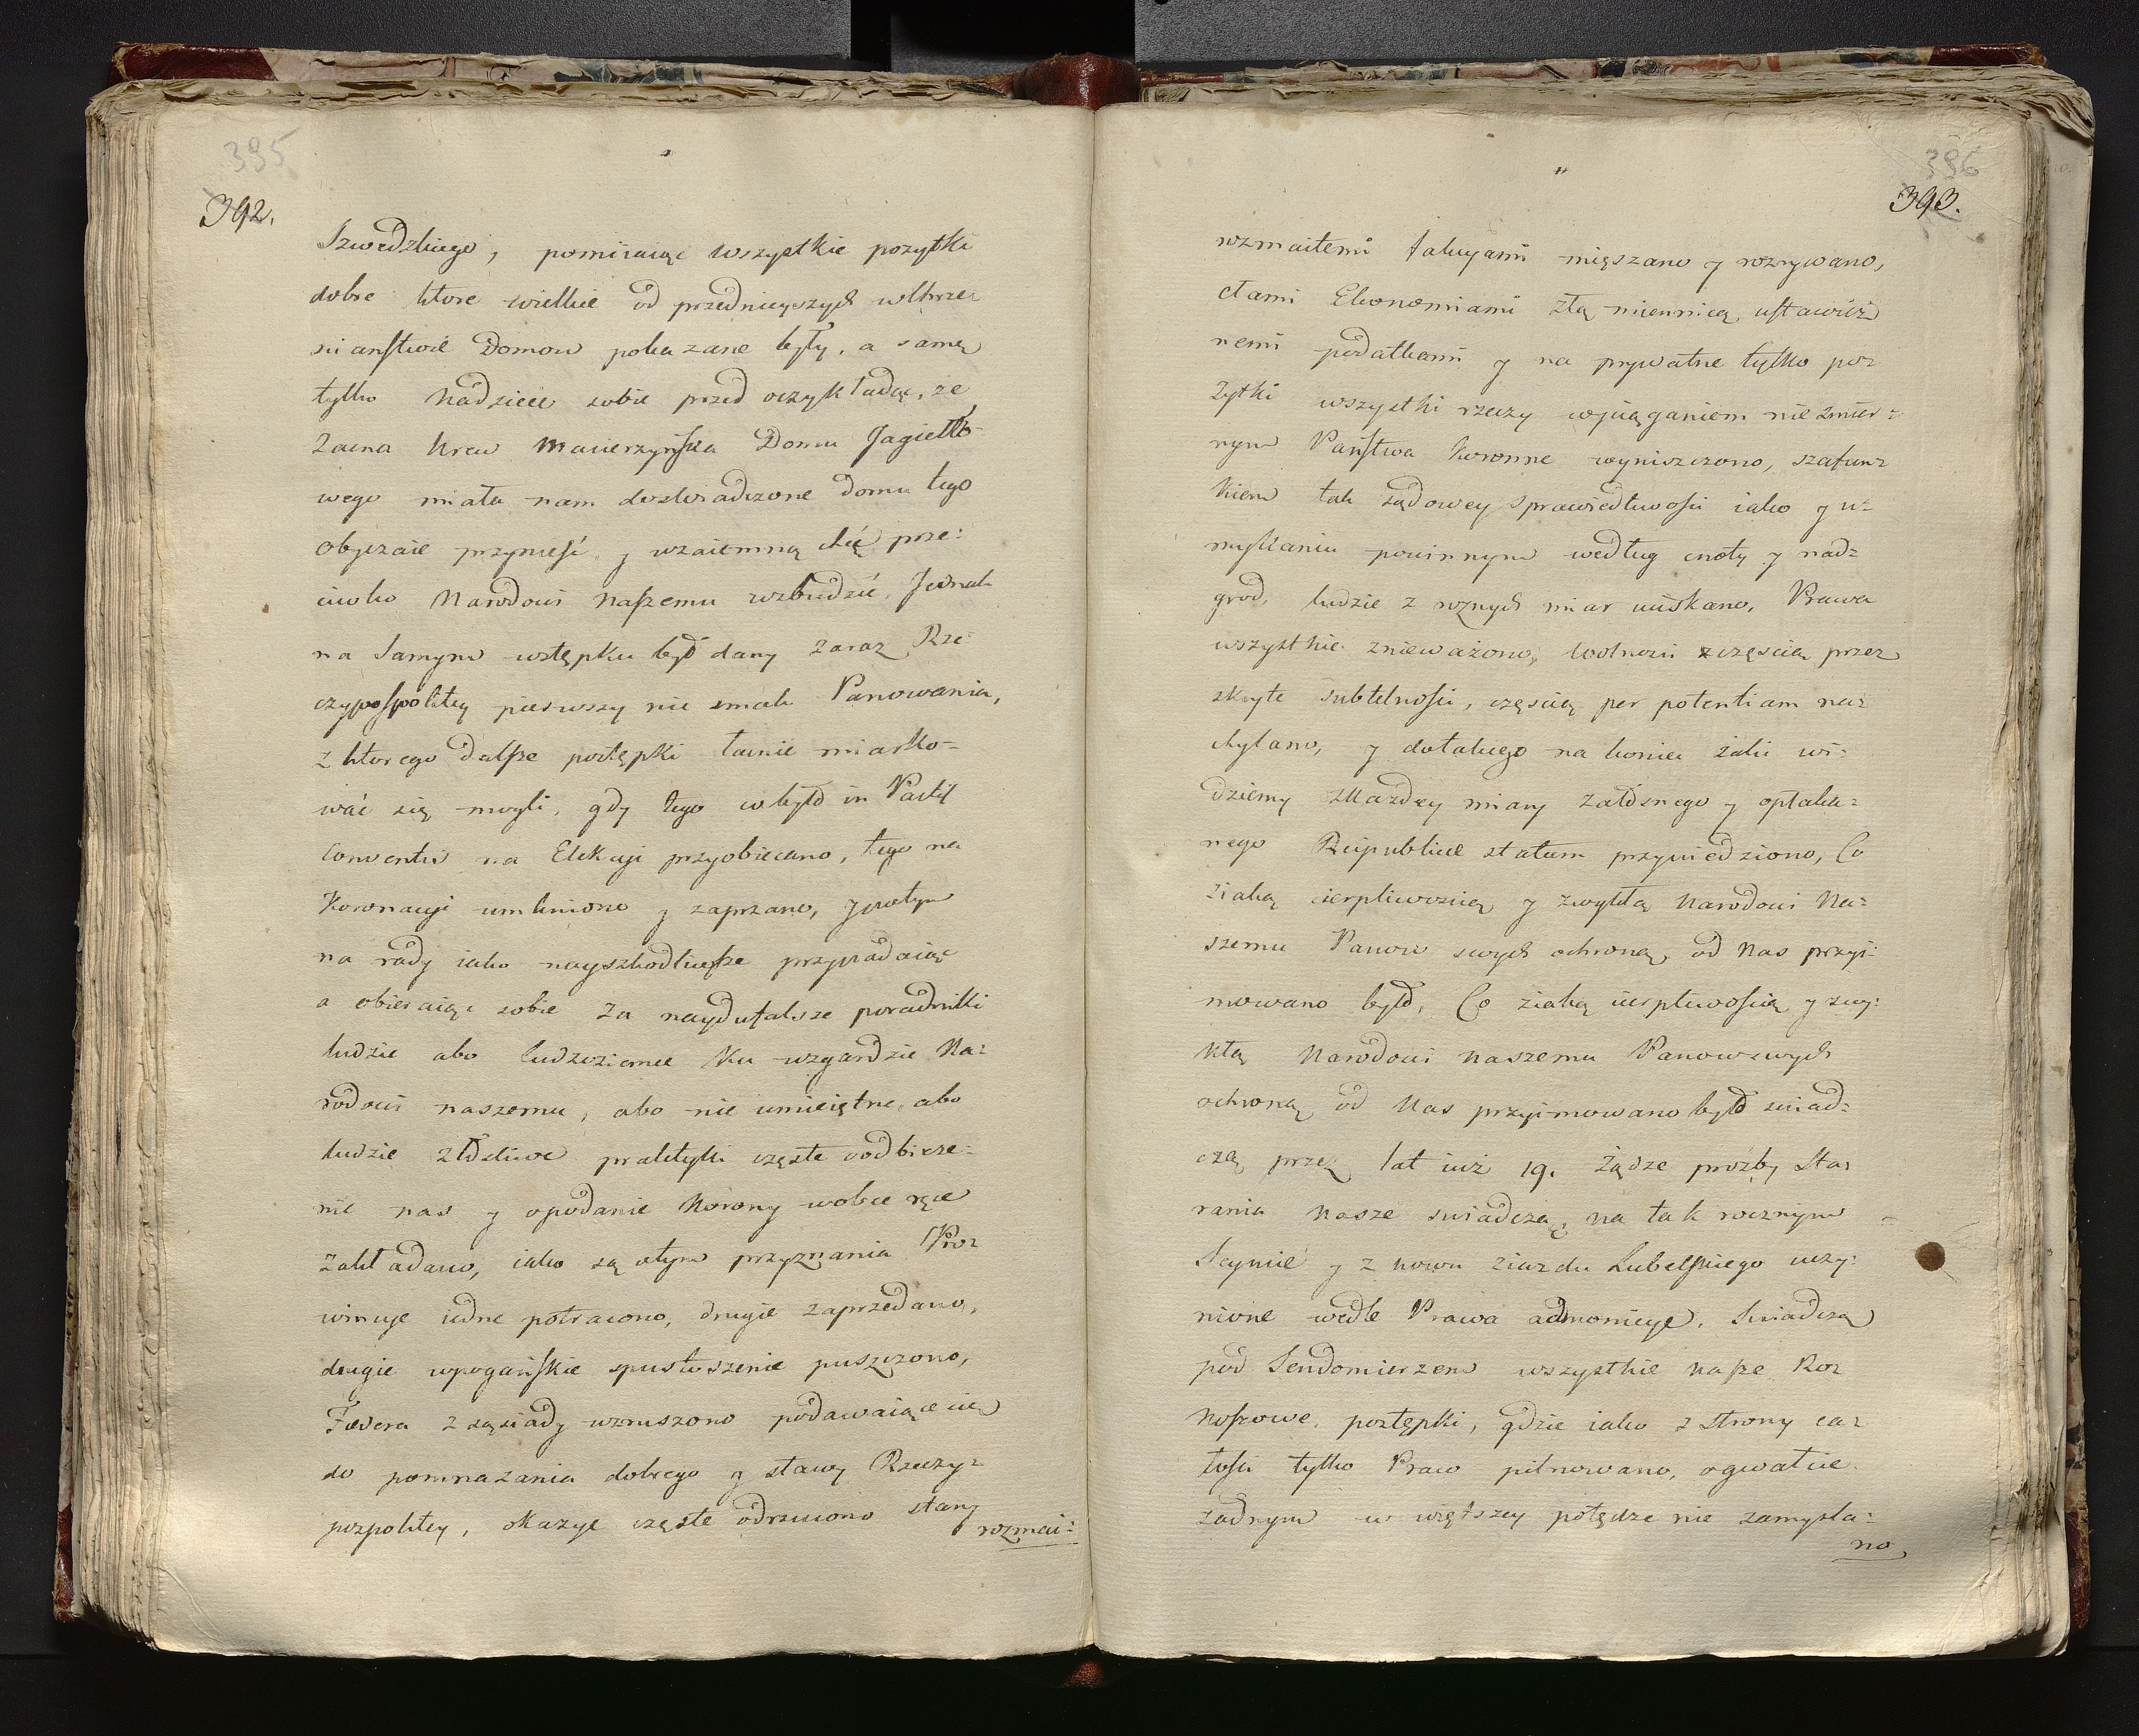 395
392.
Szwedzkiego, pomiiaiąc wszystkie pozytki
dobre ktore wielkie od przednieyszych wchrze:
sciaństwie Domow pokazane były, a samę
tylko Nadzieie sobie przed oczy kładąc, ze
Zacna Krew Macierzyńska Domu Jagiełło-
wego miała nam doswiadczone domu tego
obyczaie przynieść y wzaiemną chęć prze:
ciwko Narodowi Naszemu wzbudzić. Jednak
na Samym wstępku był dany zaraz Rze:
czypospolitey pierwszy nie smak Panowania,
z ktorego dalsze postępki łacnie miarko-
wać się mogli, gdy tego co było in Pactis
Conventis na Elekcyi przyobiecano, tego na
Koronacyi umkniono y zaprzano, y potym
na rady iako nayszkodliwsze przypadaiąc
a obieraiąc sobie za naydufalsze poradniki
ludzie abo ludzoziemce ku wzgardzie Na:
rodowi naszemu, abo nie umieiętne, abo
ludzie złosliwe praktyki częste oodbieże:
nie nas y opodanie Korony wobce ręce
zakładano, iako są otym przyznania Pro:
wincye iedne potracono, drugie zaprzedano,
drugie wpogańskie spustoszenie puszczono,
Fœdera z sąsiady wzruszono podawaiące się
do pomnażania dobrego y sławy Rzeczy:
pospolitey, okazye częste odrzucono stany
rozmai:
396
393.
rozmaitemi fakcyami mięszano y rozrywano,
cłami Ekonomiami złą miennicą, ustawicz
nemi podatkami y na prywatne tylko po:
żytki wszystki rzeczy wyciąganiem nie zmier:
nym Państwa Koronne wyniszczono, szafun:
kiem tak sądowey sprawiedliwości iako y u:
myskaniu powinnym według cnoty y nad:
grod, ludzie z roznych miar uciskano, Prawa
wszystkie znieważono, Wolności częścią przez
skryte subtelności, częścią per potentiam na:
chylano, y dotakiego na koniec żalu wi:
dziemy zkazdey miary załosnego y opłaka:
nego Reipublicæ statum przywiedziono, Co
ziaką cierpliwoscią y zwykłą Narodowi Na:
szemu Panow swych ochroną, od Nas przyi:
mowano było, Co ziaką cierpliwoscią y zwy:
kłą Narodowi naszemu Panow swych
ochroną od Nas przyimowano było swiad:
czą przez lat iuż 19. Żądze prozby Sta:
rania Nasze swiadczą, na tak rocznym
Seymie y z nowu ziazdu Lubelskiego uczy:
nione wedle Prawa admonicye. Swiadczą
pod Sendomierzem wszystkie Nasze Ro:
koszowe postępki, gdzie iako z strony ca:
łości tylko Praw pilnowano, ogwałcie
żadnym w więtszey potędze nie zamysla:
no